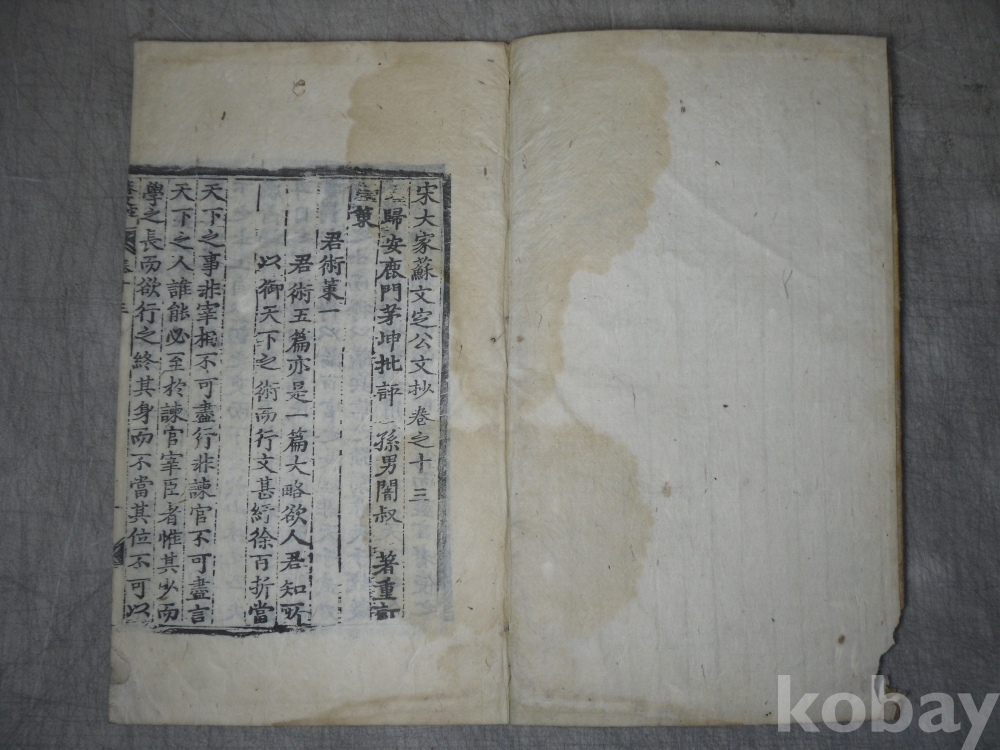 宋大家蘇文定公文抄卷之十三
歸安鹿門茅坤批評 孫男闇叔 著重訂
策
君術策一
君術五篇亦是一篇大略欲人君知所
以御天下之術而行文甚紆徐百折當
天下之事非宰相不可盡行非諫官不可盡言
天下之人誰能必至於諫官宰臣者惟其少而
學之長而欲行之終其身而不當其位不可以
kobay